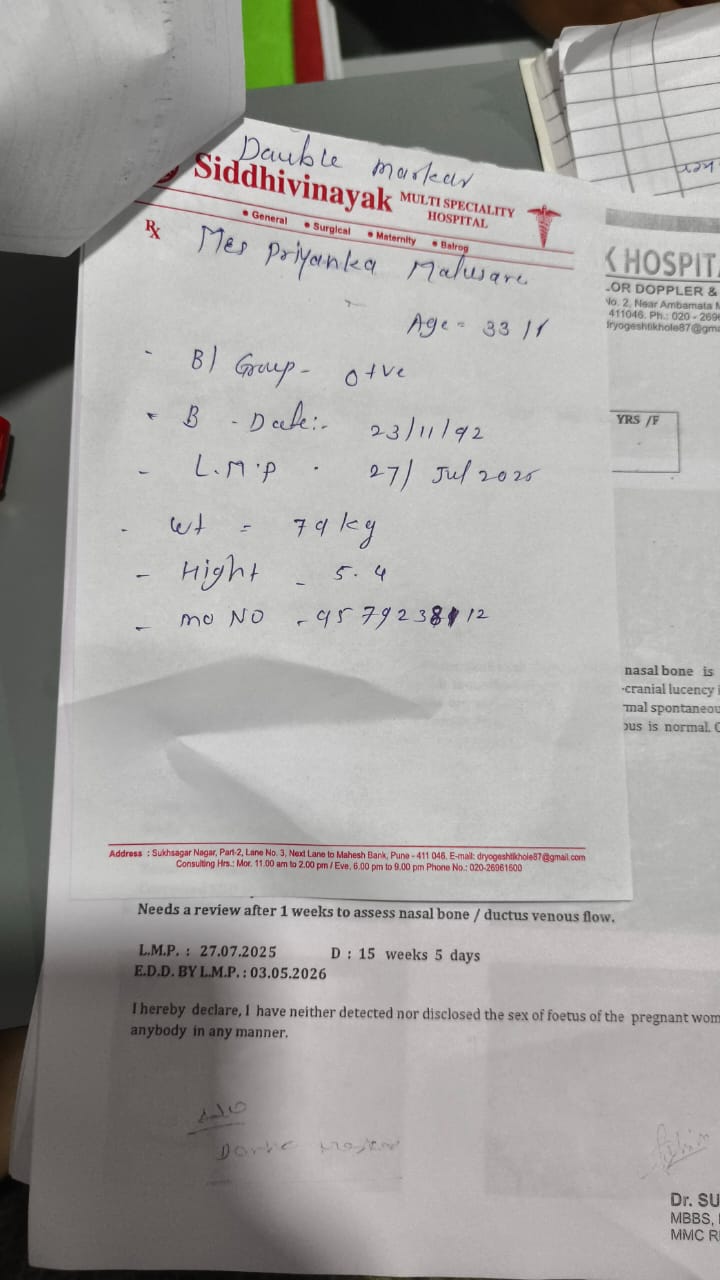 Dauble markar
Siddhivinayak MULTI SPECIALITY HOSPITAL
• General • Surgical • Maternity • Bairog
Rx
Mes Priyanka Malusare
Age - 33 yr
- Bl Group - O +ve
- B - Date:- 23/11/92
- L.M.P. 27/ Jul 2025
- Wt = 79 kg
- Hight - 5.4
- mo NO - 9579238112
Address : Sukhsagar Nagar, Part-2, Lane No. 3, Next Lane to Mahesh Bank, Pune - 411 046. E-mail: dryogeshtikhole87@gmail.com
Consulting Hrs.: Mor. 11.00 am to 2.00 pm / Eve. 6.00 pm to 9.00 pm Phone No.: 020-26961600
K HOSPITA
OR DOPPLER &
No. 2, Near Ambamata
411046. Ph.: 020 - 269
dryogeshtikhole87@gm
YRS /F
nasal bone is
-cranial lucency
mal spontaneou
ous is normal.
Needs a review after 1 weeks to assess nasal bone / ductus venous flow.
L.M.P. : 27.07.2025 D : 15 weeks 5 days
E.D.D. BY L.M.P. : 03.05.2026
I hereby declare, I have neither detected nor disclosed the sex of foetus of the pregnant wom
anybody in any manner.
Dr. SU
MBBS,
MMC R